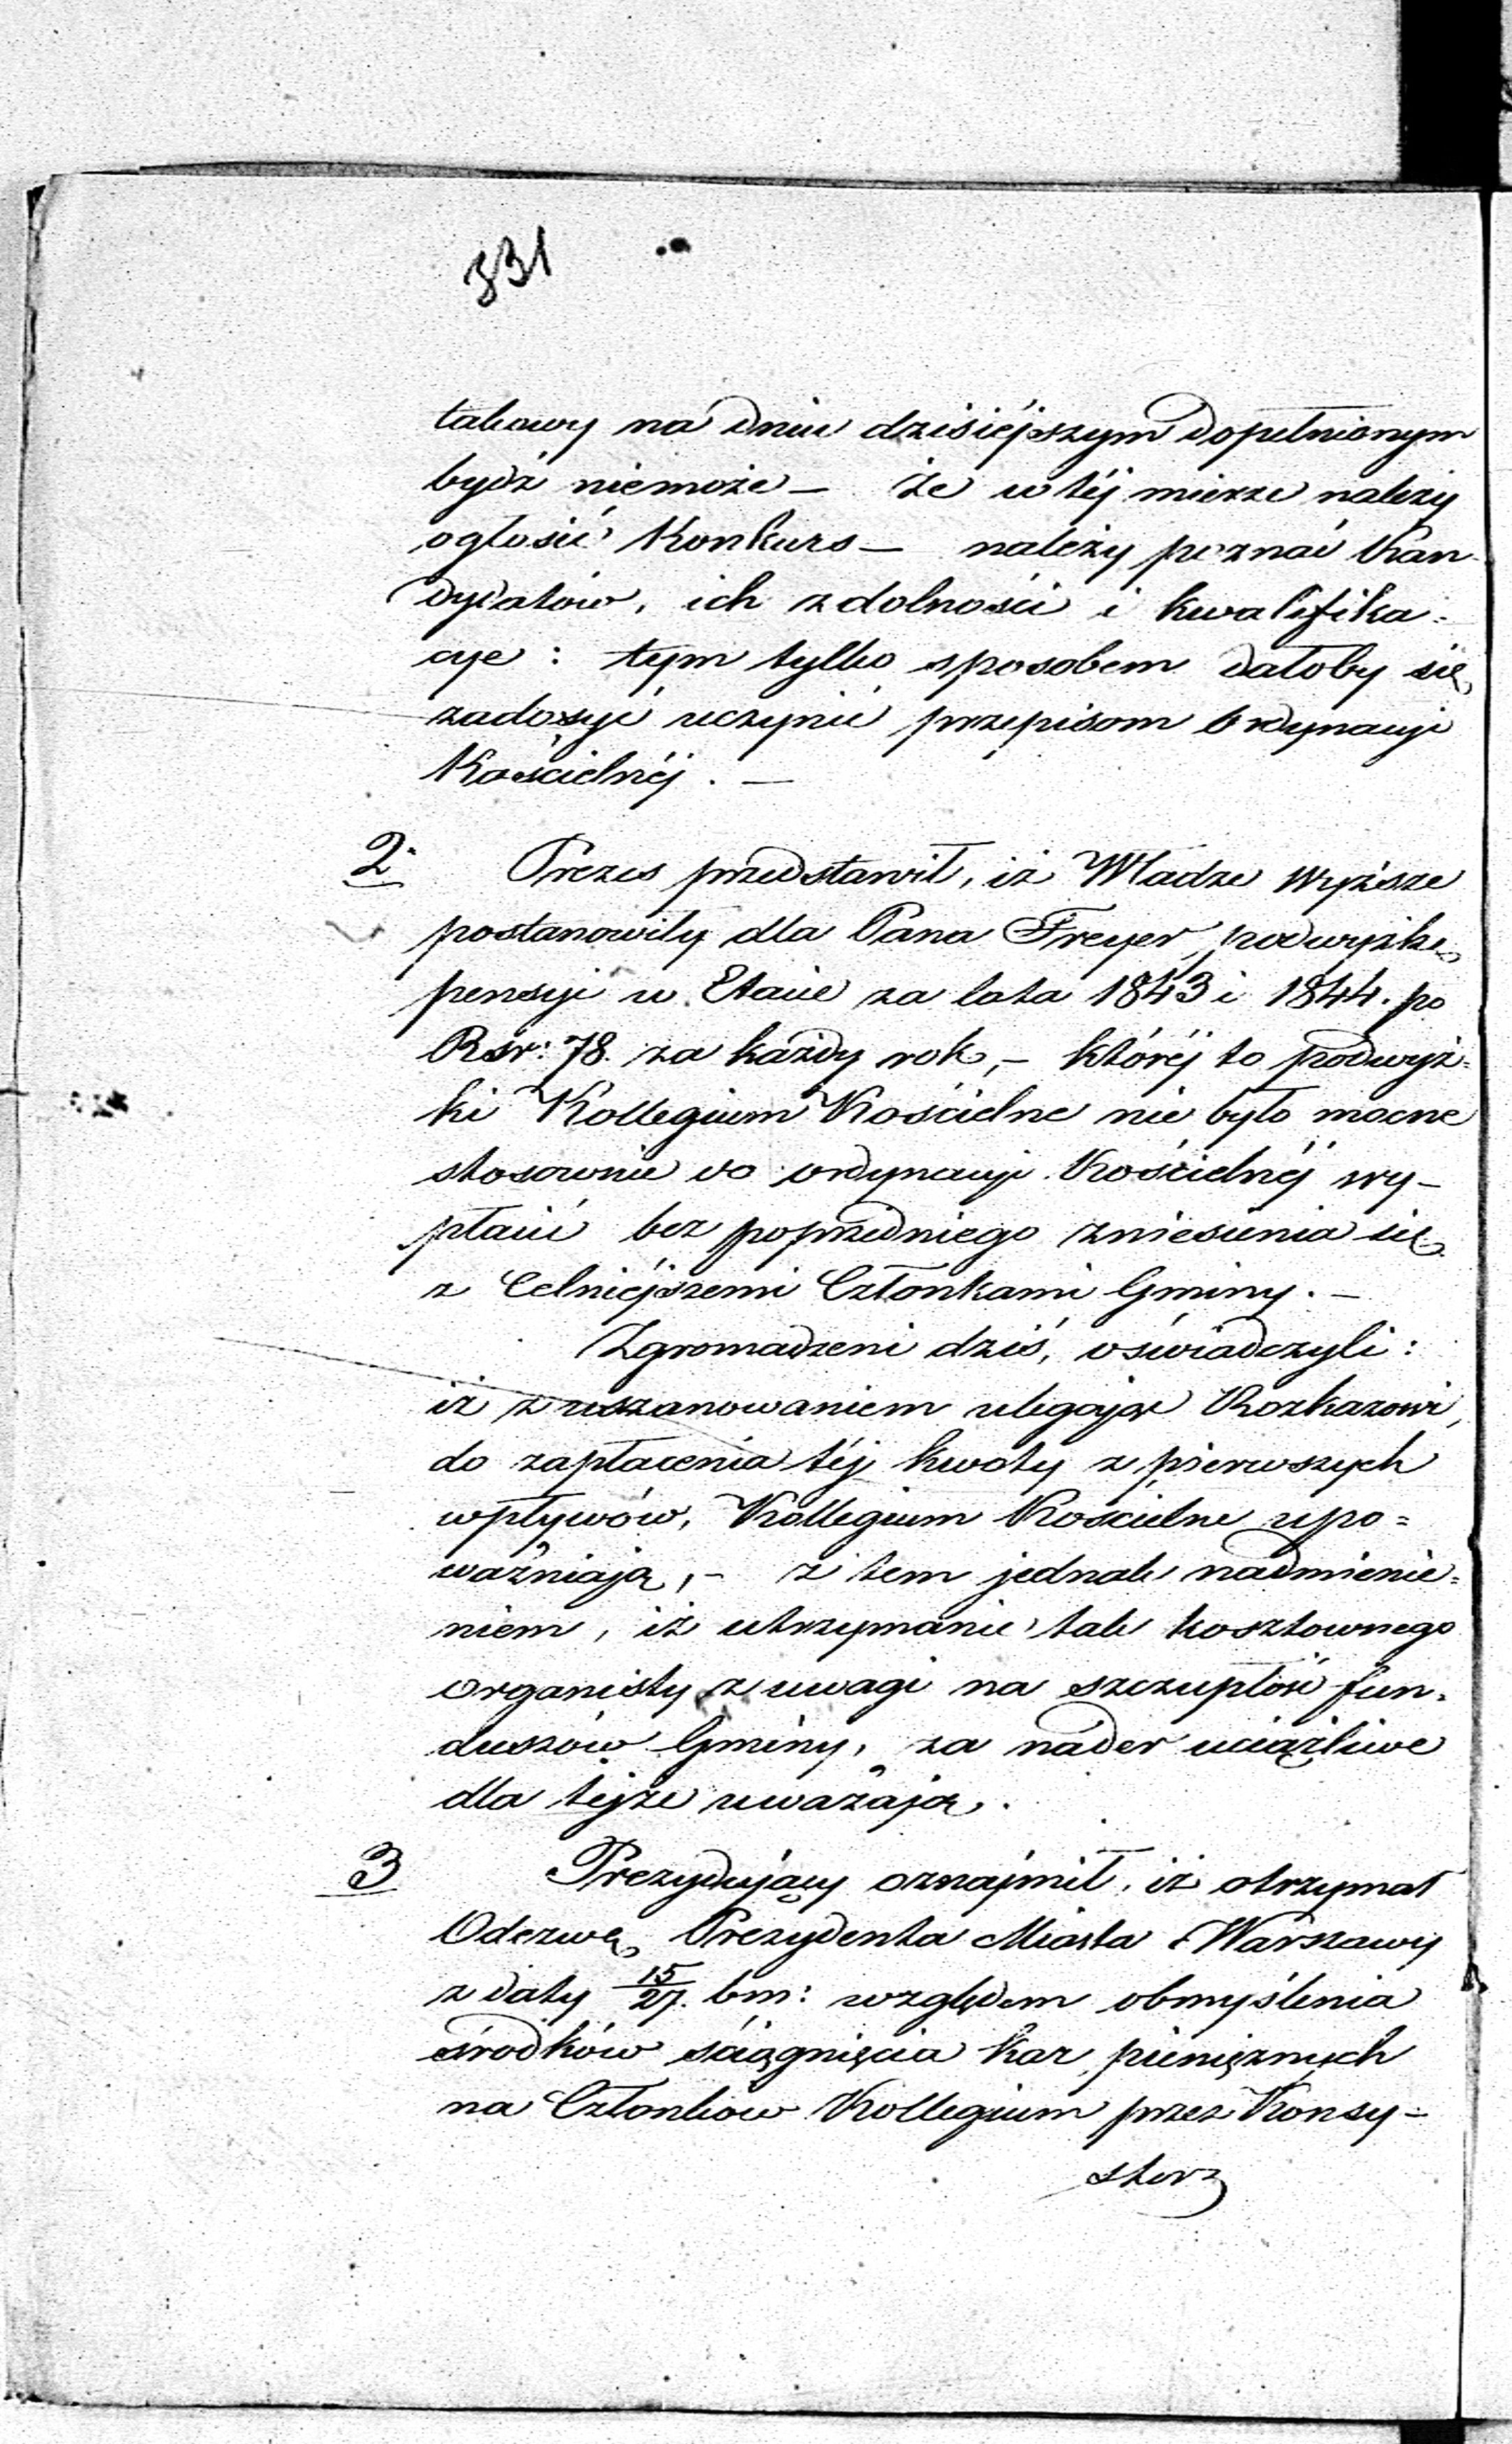 331
takowy na dniu dzisiéjszym dopełnionym
bydź niemoże – że w téj mierze należy
ogłosić Konkurs – należy poznać Kan-
dydatów, ich zdolności i kwalifika=
cye: tym tylko sposobem dałoby się
zadosyć uczynić przepisom Ordynacyi
Kościelnéj. –
2. Prezes przedstawił, iż Władze wyższe
postanowiły dla Pana Freyer podwyżkę
pensyi w Etacie za lata 1843 i 1844. po
Rsr: 78. za każdy rok, – któréj to podwyż=
ki Kollegium Kościelne nie było mocne
stosownie do ordynacyi Kościelnéj wy-
płacić bez poprzedniego zniesienia się
z Celniéjszemi Członkami Gminy. –
Zgromadzeni dziś, oświadczyli:
iż z uszanowaniem ulegając Rozkazowi,
do zapłacenia téj kwoty z pierwszych
wpływów, Kollegium Kościelne upo=
ważniają, – z tem jednak nadmienie=
niem, iż utrzymanie tak kosztownego
organisty z uwagi na szczupłość fun-
duszów Gminy, za nader uciążliwe
dla téjże uważają.
3 Prezydujący oznajmił, iż otrzymał
Odezwę Prezydenta Miasta Warszawy
z daty 15/27. bm: względem obmyślenia
środków ściągnięcia kar pieniężnych
na Członków Kollegium przez Konsy-
storz